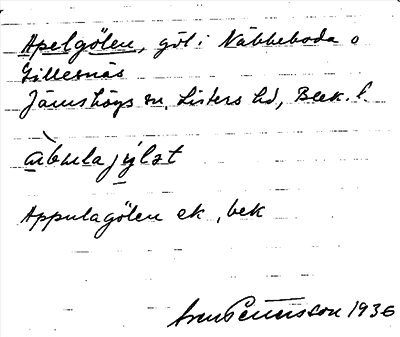 Apelgölen, göl i Näbbeboda o
Gillesnäs
Jämshögs sn. Listers hd, Blek. l.
Appulagölen ek, bek
1936